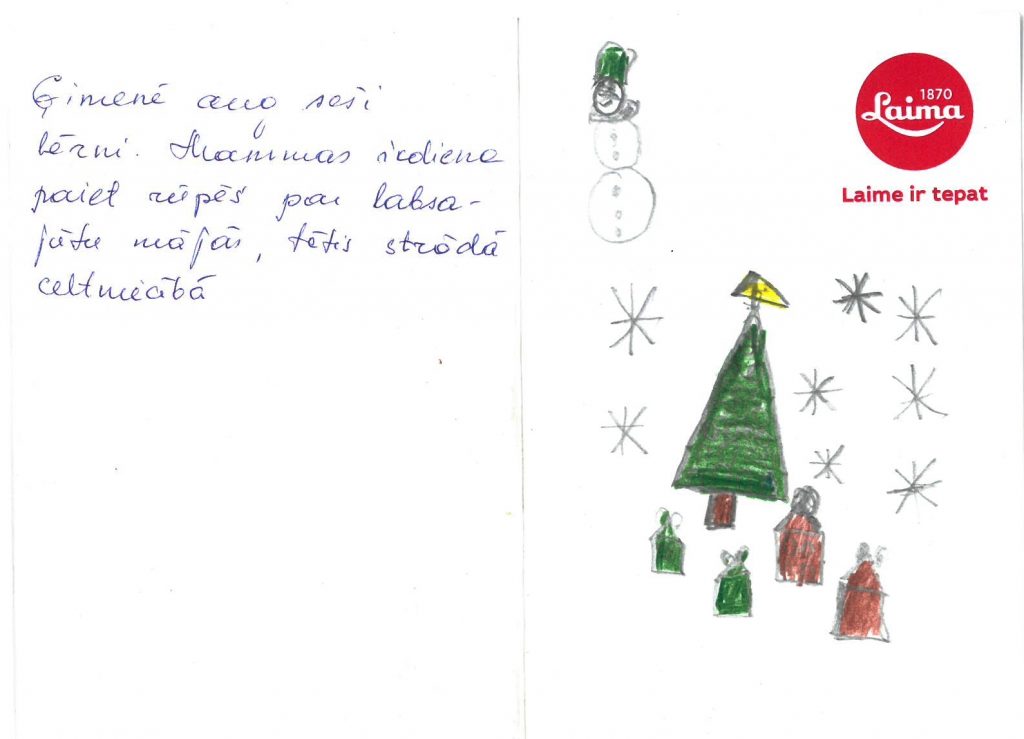 Ģimenē aug seši
bērni. Mammas ikdiena
paiet rūpēs par labsa-
jūtu mājās, tētis strādā
celtniecībā
1870
Laima
Laime ir tepat